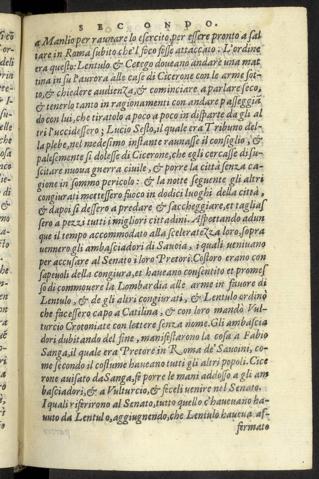 SECONDO.
a Manlio per raunare lo esercito, per essere pronto a sal
tare in Roma subito, che'l foco fosse attaccato: L'ordine
era questo: Lentulo & Cetego doueano andare una mat
tina in su l'aurora alle case di Cicerone con le arme sot-
to, & chiedere audienza, & cominciare a parlare seco,
& tenerlo tanto in ragionamenti con andare passeggiã
do con lui, che tiratolo a poco a poco in disparte da gli al
tri l'uccidessero; Lucio Sesto, il quale era Tribuno del-
la plebe, nel medesimo instante raunasse il consiglio, &
palesemente si dolesse di Cicerone, che egli cercasse disu-
scitare nuoua guerra ciuile, & porre la città senza ca-
gione in sommo pericolo: & la notte seguente gli altri
congiurati mettessero fuoco in dodici luoghi della città,
& dapoi si dessero a predare & saccheggiare, et taglias
sero a pezzi tutti i migliori cittadini. Aspettando adun
que il tempo accommodato alla sceleratezza loro, sopra
uennero gli ambasciadori di Sauoia, i quali ueniuano
per accusare al Senato i loro Pretori. Costoro erano con
sapeuoli della congiura, et haueano consentito et promes
so di commouere la Lombardia alle arme in fauore di
Lentulo, & de gli altri congiurati, & Lentulo ordinò
che facessero capo a Catilina, & con loro mandò Vul-
turcio Crotoniate con lettere senza nome. Gli ambascia
dori dubitando del fine, manifestarono la cosa a Fabio
Sanga, il quale era Pretore in Roma de' Sauoini, co-
me secondo il costume haueano tutti gli altri popoli. Cice
rone auisato da Sanga, fè porre le mani addosso a gli am
basciadori, & a Vulturcio, & feceli uenire nel Senato.
I quali riferirono al Senato, tutto quello c'haueuano ha-
uuto da Lentulo, aggiugnendo, che Lentulo haueua af-
fermato